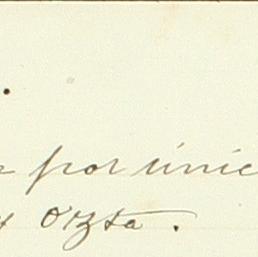 por únic
orzta.